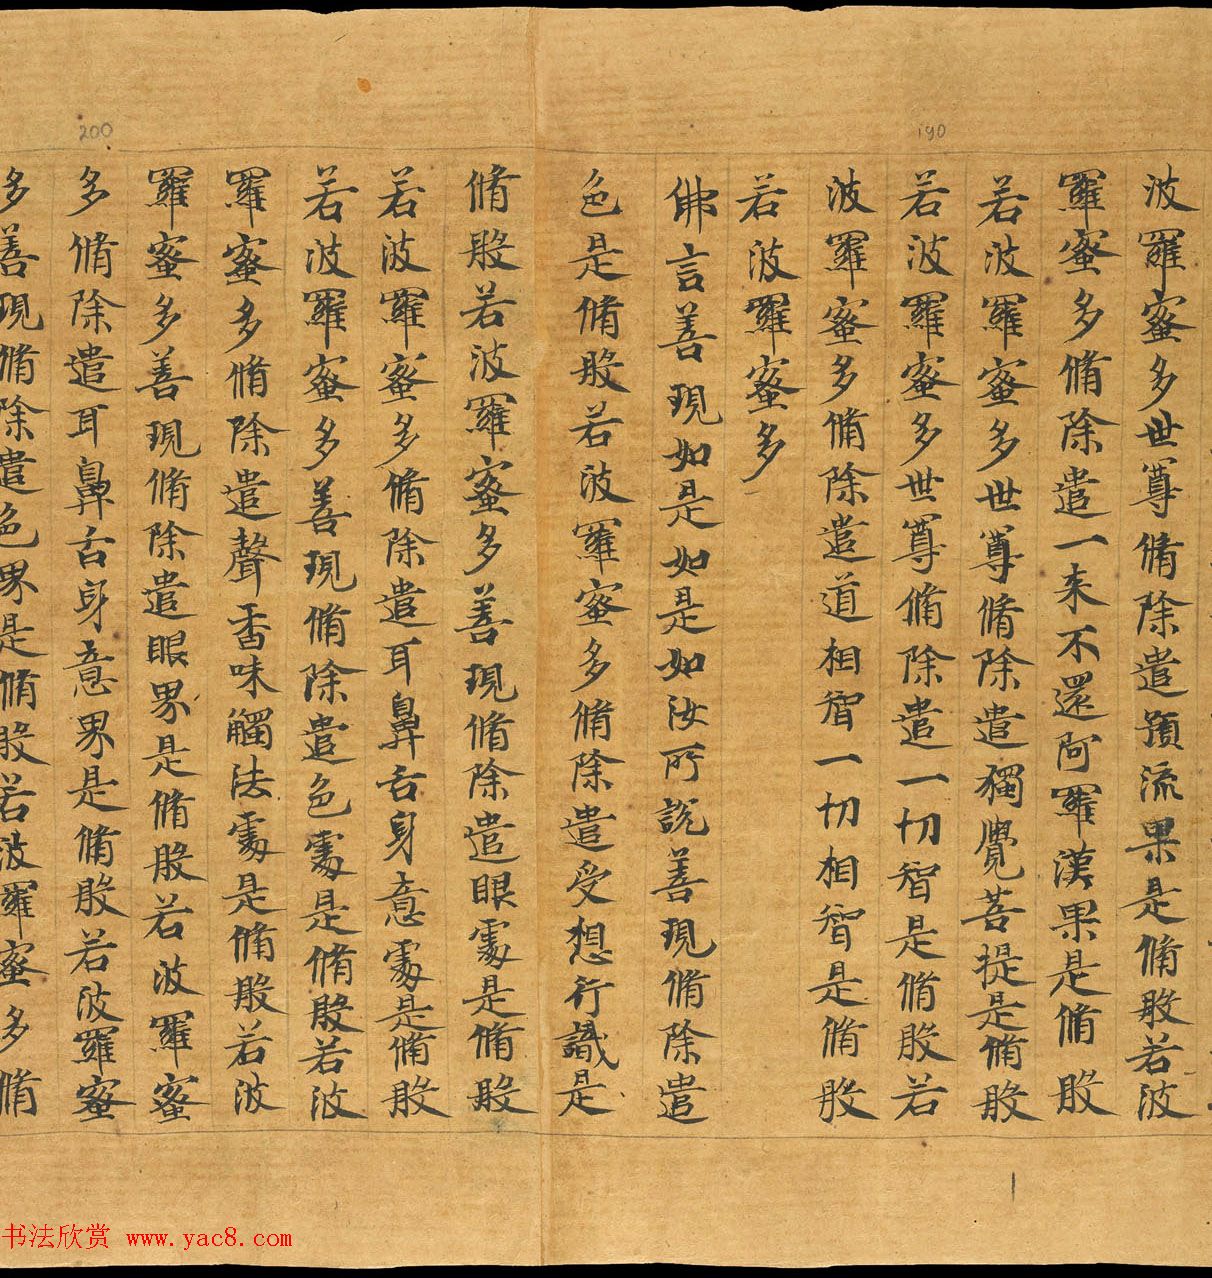 190
200
波羅蜜多世尊脩除遣預流果是脩般若波
羅蜜多脩除遣一来不還阿羅漢果是脩般
若波羅蜜多世尊脩除遣獨覺菩提是脩般
若波羅蜜多世尊脩除遣一切智是脩般若
波羅蜜多脩除遣道相智一切相智是脩般
若波羅蜜多
佛言善現如是如是如汝所說善現脩除遣
色是脩般若波羅蜜多脩除遣受想行識是
脩般若波羅蜜多善現脩除遣眼處是脩般
若波羅蜜多脩除遣耳鼻舌身意處是脩般
若波羅蜜多善現脩除遣色處是脩般若波
羅蜜多脩除遣聲香味觸法處是脩般若波
羅蜜多善現脩除遣眼界是脩般若波羅蜜
多脩除遣耳鼻舌身意界是脩般若波羅蜜
多善現脩除遣色界是脩般若波羅蜜多脩
书法欣赏 www.yac8.com